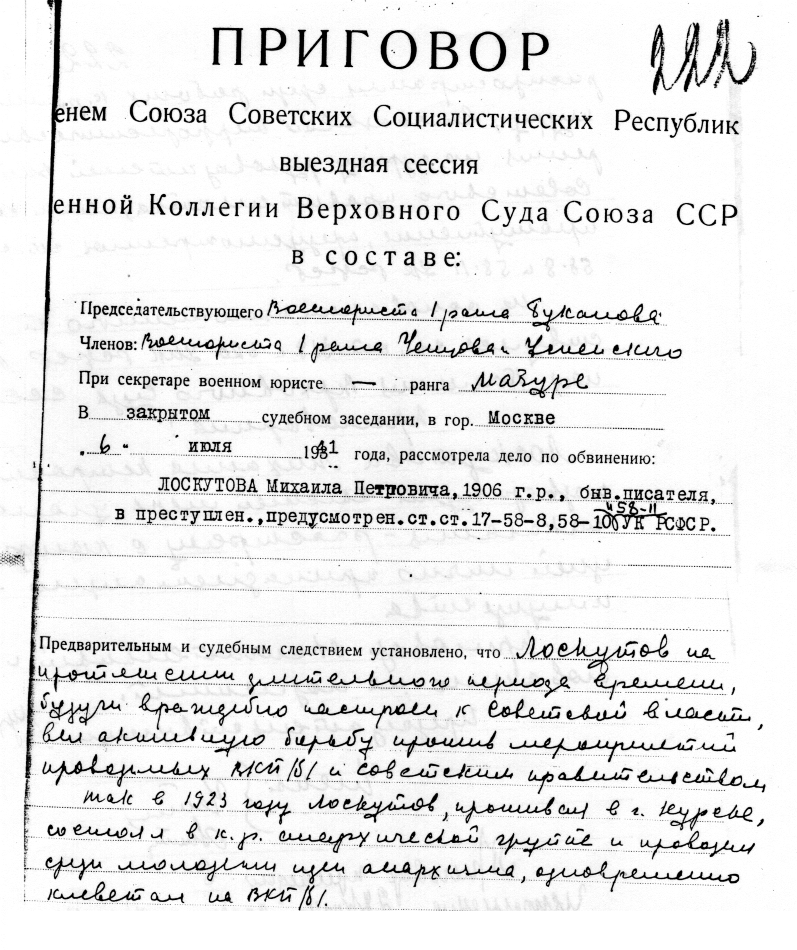 222
ПРИГОВОР
енем Союза Советских Социалистических Республик
выездная сессия
енной Коллегии Верховного Суда Союза ССР
в составе:
Председательствующего Военюриста I ранга Буканова
Членов: Военюриста I ранга Чепцова и Успенского
При секретаре военном юристе — ранга Мазуре
В закрытом судебном заседании, в гор. Москве
"6" июля 1941 года, рассмотрела дело по обвинению:
ЛОСКУТОВА Михаила Петровича, 1906 г.р., быв.писателя,
в преступлен., предусмотрен.ст.ст.17-58-8, 58-10 и 58-11 УК РСФСР.
Предварительным и судебным следствием установлено, что Лоскутов на
протяжении длительного периода времени,
будучи враждебно настроен к советской власти,
вел активную борьбу против мероприятий
проводимых ВКП/б/ и советским правительством
так в 1923 году Лоскутов, проживая в г. Курске,
состоял в к.р. анархической группе и проводил
среди молодежи идеи анархизма, одновременно
клеветал на ВКП/б/.